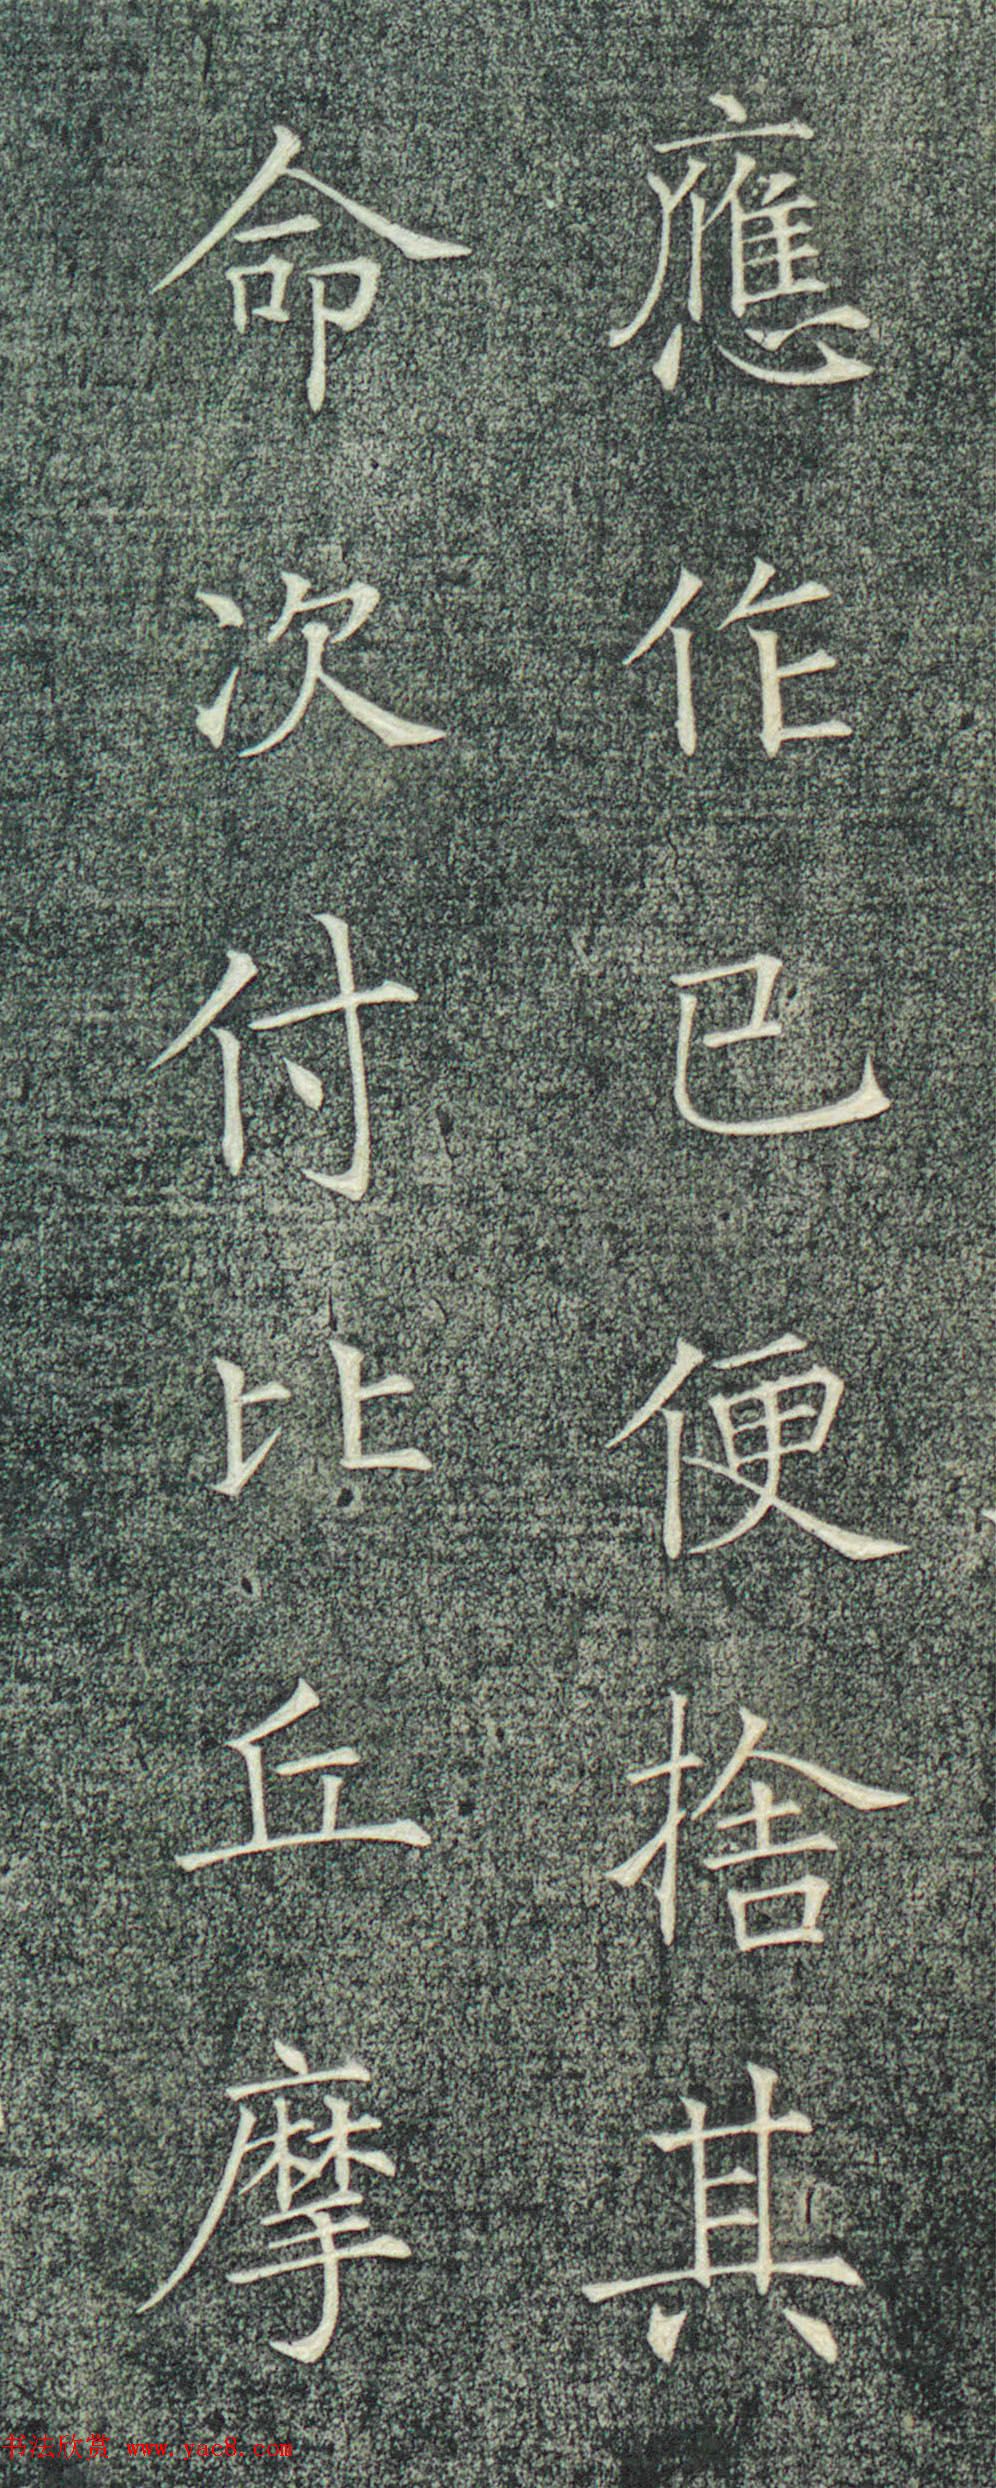 應作已便捨其
命次付比丘摩
书法欣赏 www.yac8.com